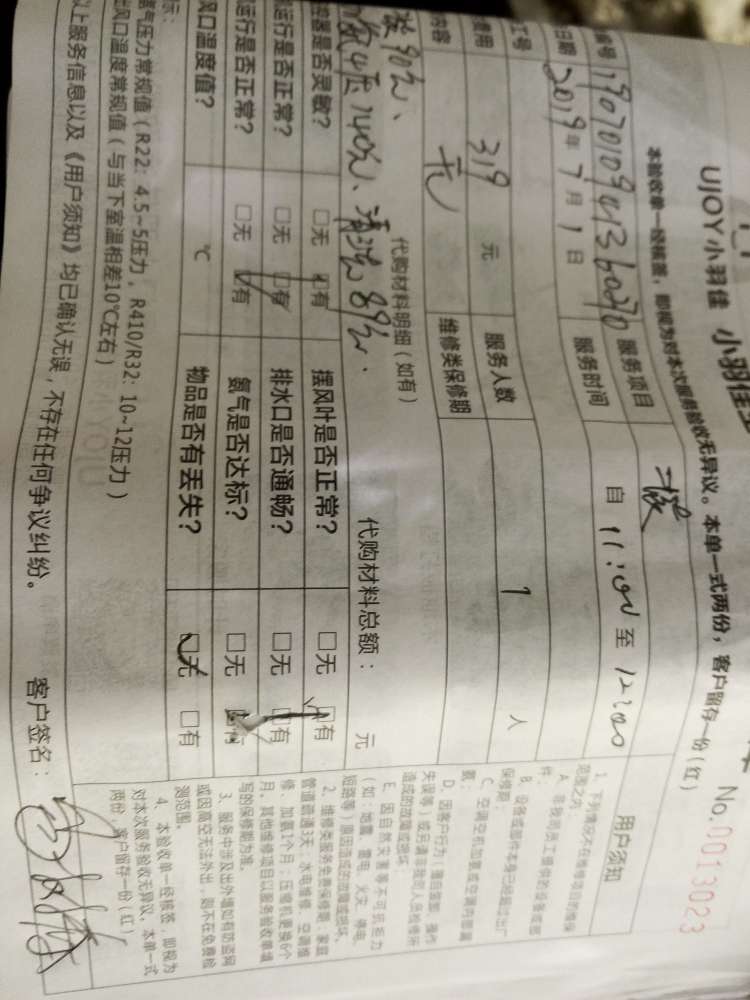 UJOY小羽佳 小羽佳
No.0013023
本验收单一经核签，即视为对本次服务验收无异议。本单一式两份，客户留存一份(红)
编号 服务项目
日期 2019年7月1日 服务时间 自 11:00 至 12:00
工号
费用 319 元 服务人数 1 人
内容 无 维修类保修期
代购材料明细（如有） 代购材料总额： 元
140元、清洗89元.
控器是否灵敏? □无 □有 摆风叶是否正常? □无 □有
运行是否正常? □无 □有 排水口是否通畅? □无 □有
运行是否正常? □无 □有 氨气是否达标? □无 □有
风口温度值? ℃ 物品是否有丢失? □无 □有
标：
氨气压力常规值（R22：4.5~5压力，R410/R32：10~12压力）
出风口温度常规值（与当下室温相差10℃左右）
以上服务信息以及《用户须知》均已确认无误，不存在任何争议纠纷。 客户签名：
用户须知
1、下列情况不在维修项目的维保
范围之内：
A、非我司员工提供的设备或部
件；
B、设备或部件本身已经超过出厂
保修期；
C、空调空机加氨或空调内部漏
氨；
D、因客户行为（擅自拆卸、操作
失误等）或另请非我司人员检修所
造成的故障或损坏；
E、因自然灾害等不可抗拒力
（如：地震、雷电、火灾、停电、
短路等）原因造成的故障或损坏。
2、维修类服务免费保修期：家庭
管道疏通3天；水电维修、空调维
修、加氨1个月；压缩机更换6个
月，其他维修项目以服务验收单填
写的保修期为准。
3、服务中涉及出外墙如有防盗网
或因高空无法外出，则不在免费检
测范围。
4、本验收单一经核签，即视为
对本次服务验收无异议，本单一式
两份，客户留存一份（红）